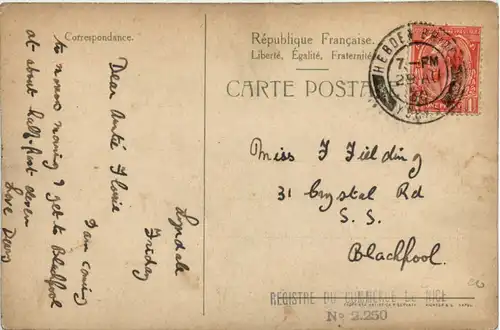 Correspondance.
République Française.
Liberté, Égalité, Fraternité
CARTE POSTA
HEBDEN BRIDGE
7-PM
29 AU
Lyndale
Friday
Dear Antie Florie
I am coming
to morrow moring I get to Blackpool
at about half-past eleven
Love
Miss F Fielding
31 Crystal Rd
S. S.
Blackpool.
REGISTRE DU COMMERCE DE NICE
No 2.250